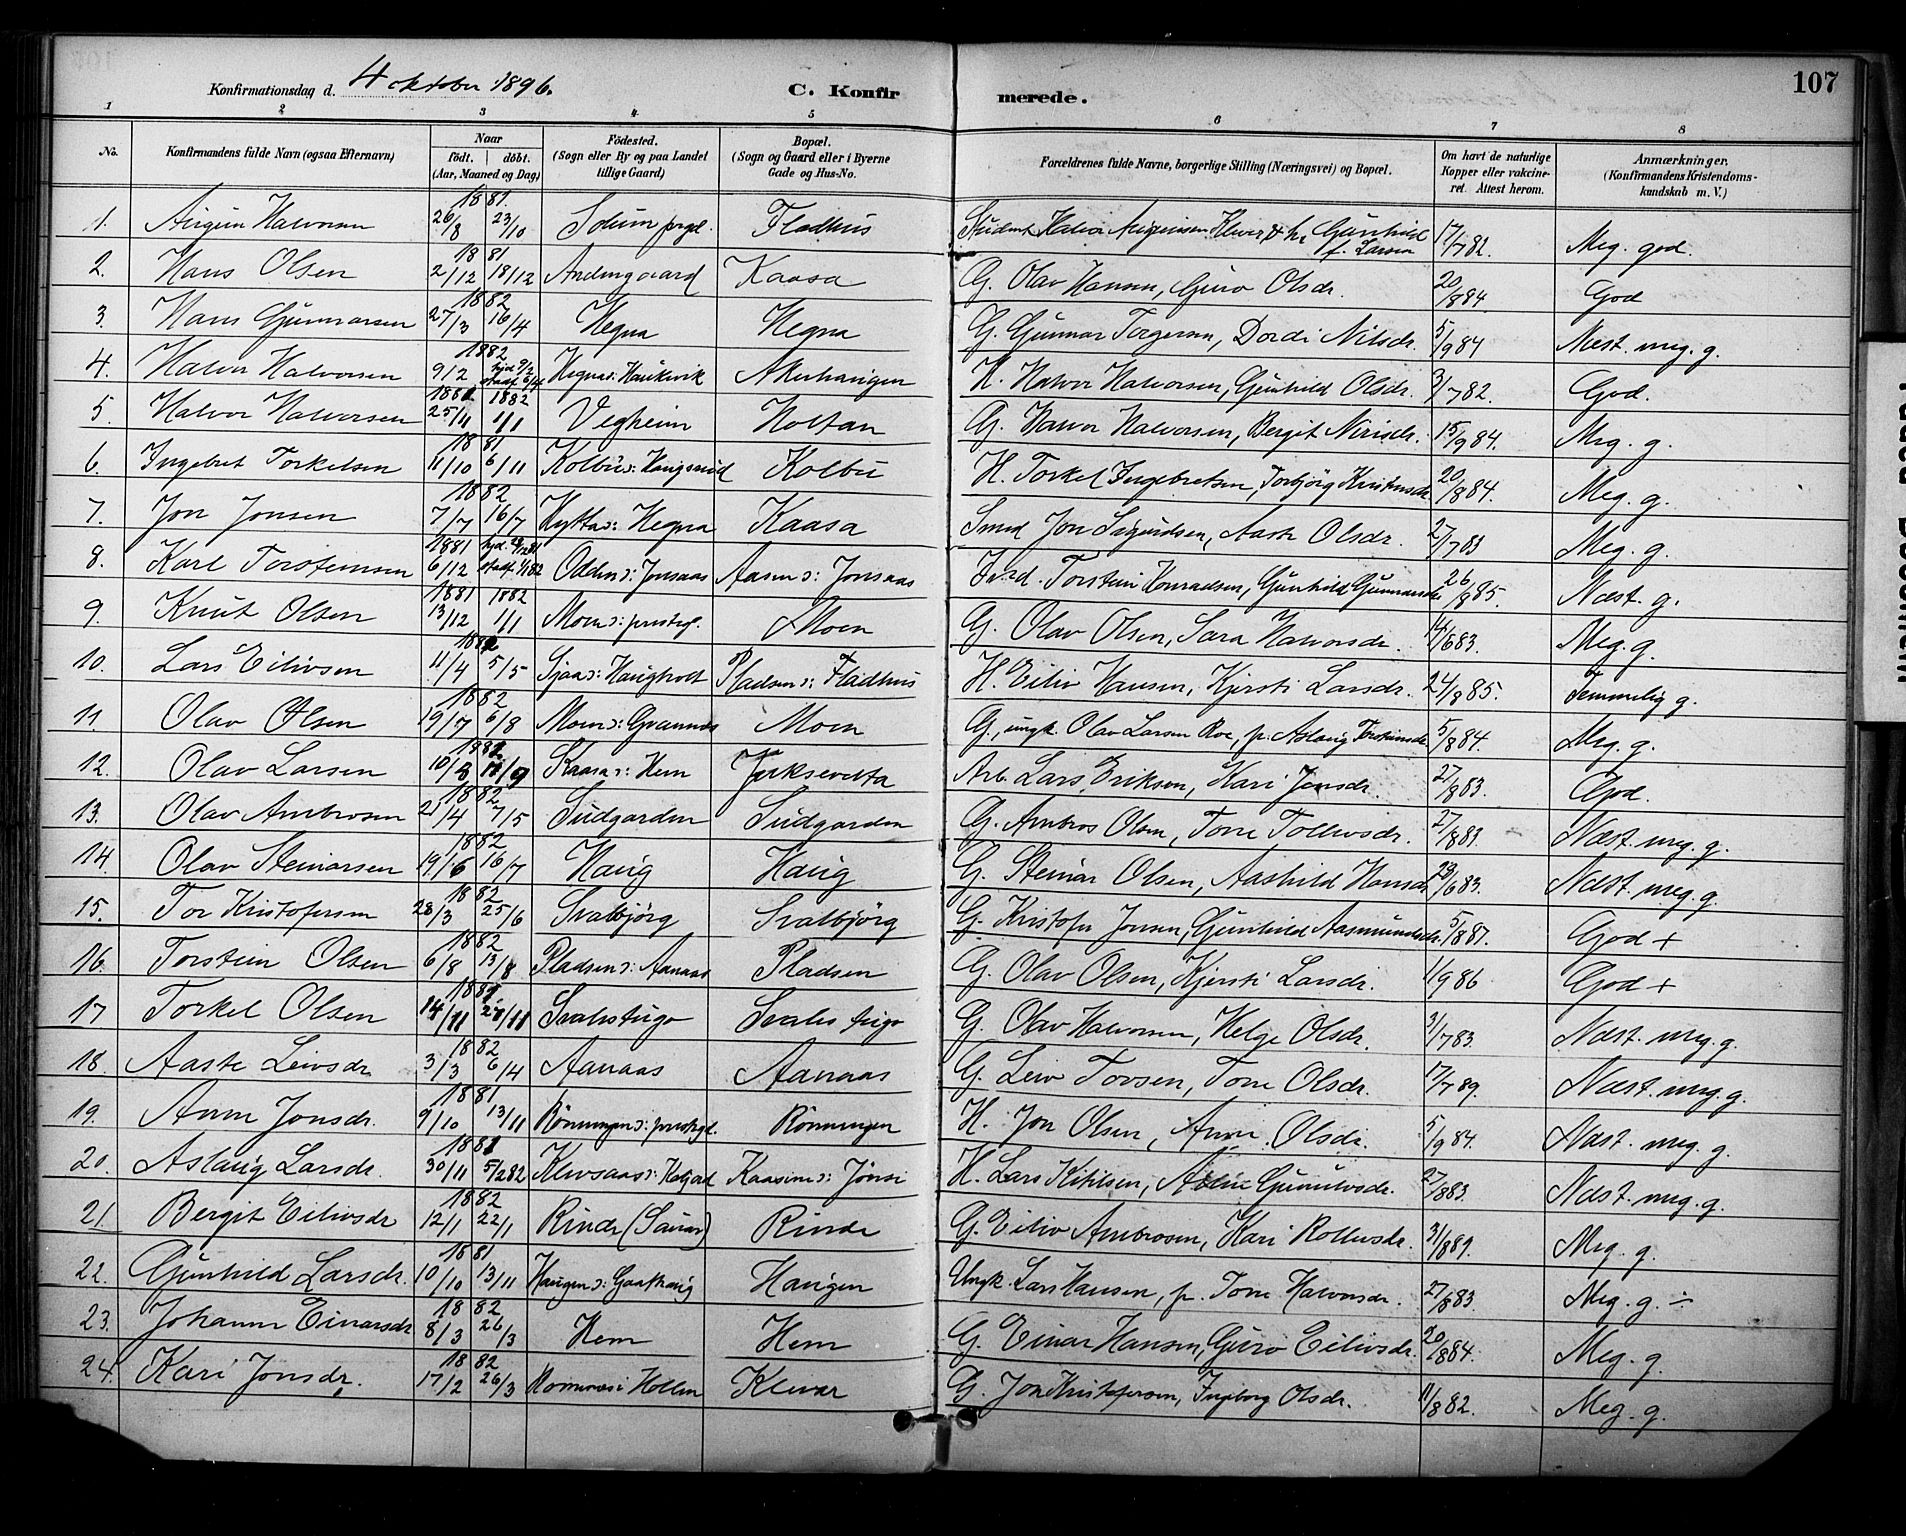 107
Konfirmationsdag d. 4 oktober 1896.
C. Konfirmerede.
1 2 3 4 5 6 7 8
No. | Konfirmandens fulde Navn (ogsaa Efternavn) | Naar født. | døbt. (Aar, Maaned og Dag) | Födested. (Sogn eller By og paa Landet tillige Gaard) | Bopæl. (Sogn og Gaard eller i Byerne Gade og Hus-No. | Forældrenes fulde Navne, borgerlige Stilling (Næringsvei) og Bopæl. | Om havt de naturlige Kopper eller vakcineret. Attest herom. | Anmærkninger. (Konfirmandens Kristendomskundskab m. V.)
1. Halvorsen 1881. 26/8 23/10 prgd. Fladhus Student Halvor Klevar & h. Gunhild f. Larsen 17/7 82. Meg. god.
2. Hans Olsen 1881 2/12 18/12 Anderngaard Kaasa G. Olav Hansen, Guro Olsdr. 20/8 84. God
3. Hans Gunnarsen 1882 27/3 16/4 Hegna Hegna G. Gunnar Torgersen, Dordi Nilsdr. 5/9 84 Næst. meg. g.
4. Halvor Halvorsen 1882 9/2 hjd. 9/2 stadf. 6/4 Hegna: Haukevik Akerhaugen H. Halvor Halvorsen, Gunhild Olsdr. 3/7 82. God.
5. Halvor Halvorsen 1881 1882 25/11 1/1 Vegheim Holtan G. Halvor Halvorsen, Bergit Nirisdr. 15/9 84. Meg. g.
6. Ingebret Torkelsen 1881 11/10 6/11 Kolbu: Haugerud Kolbu H. Torkel Ingebretsen, Torbjörg Kristensdr. 20/8 84. Meg. g.
7. Jon Jonsen 1882 7/7 16/7 Hytta: Hegna Kaasa Smed Jon Sigurdsen, Aaste Olsdr. 27/7 83 Meg. g.
8. Karl Torsteinsen 1881 6/12 hjd. stadf. Odden: Jonsaas Aasen: Jonsaas Torstein Konradsen, Gunhild Gunnarsdr. 26/8 85. Næst. g.
9. Knut Olsen 1881 1882 13/12 1/1 Moen: prestegd. Moen G. Olav Olsen, Sara Halvorsdr. 14/6 83. Meg. g.
10. Lars Eilivsen 1882 11/4 5/5 Sjaa: Haugholt Pladsen: Fladhus H. Eiliv Hansen, Kjersti Larsdr. 24/8 85. Temmelig g.
11. Olav Olsen 1882 19/7 6/8 Moen: Grannes Moen G., ungk. Olav Larsen Roe, p. Aslaug Torsteinsdr. 5/8 84. Meg. g.
12. Olav Larsen 1882 Kaasa: Hem Jukseveita Arb. Lars Eriksen, Kari Jonsdr. 27/8 83. God.
13. Olav Ambrosen 1882 21/4 7/5 Sudgarden Sudgarden G. Ambros Olsen, Tone Tollevsdr. 27/8 83. Næst. meg. g.
14. Olav Steinarsen 1882 19/6 16/7 Haug Haug G. Steinar Olsen, Aashild Hansdr. 23/6 83. Næst. meg. g.
15. Tor Kristofersen 1882 28/3 25/6 Svalbjörg Svalbjörg G. Kristofer Jonsen, Gunhild Aasmundsdr. 5/8 87. God +
16. Torstein Olsen 1882 6/8 13/8 Pladsen: Aanaas Pladsen G. Olav Olsen, Kjersti Larsdr. 1/9 86 God +
17 Torkel Olsen 1881 14/11 27/11 Svalestugo Svalestugo G. Olav Halvorsen, Helge Olsdr. 3/7 83 Næst. meg. g.
18. Aaste Leivsdr. 1882 3/3 6/4 Aanaas Aanaas G. Leiv Tovsen, Tone Olsdr. 17/7 89. Næst. meg. g.
19. Anne Jonsdr. 1881 9/10 13/11 Rönningen: prestegd. Rönningen H. Jon Olsen, Anne Olsdr. 5/9 84. Næst. meg. g.
20. Aslaug Larsdr. 1881 30/11 5/2 82 Klevsaas: Kaasine: Jönsi H. Lars Kittilsen, Gunulvsdr. 27/8 83. Næst. meg. g.
21. Bergit Eilivsdr 1882 12/1 22/1 Rinde (Sauar) Rinde G. Eiliv Ambrosen, Kari Rollevsdr. 31/8 81. Meg. g.
22. Gunhild Larsdr. 1881 10/10 13/11 Haugen: Haugen Ungk. Lars Hansen, p. Tone Halvorsdr. 27/8 83. Meg. g. ÷
23. Johanne Einarsdr 1882 8/3 26/3 Hem Hem G. Einar Hansen, Guro Eilivsdr. 20/8 84. Meg. g.
24. Kari Jonsdr. 1882 17/2 26/3 Romnes i Hollen Klevar G. Jon Kristofersen, Ingeborg Olsdr. 11/8 82. Meg. g.